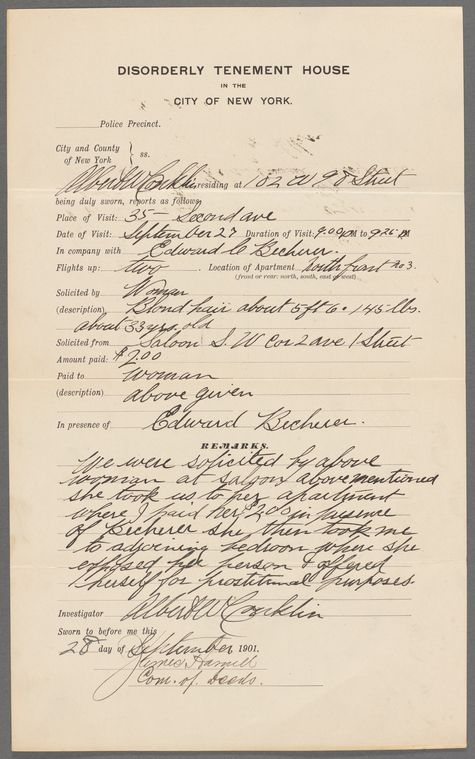 DISORDERLY TENEMENT HOUSE
IN THE
CITY OF NEW YORK.
Police Precinct.
City and County
of New York } ss.
Albert W Conklin residing at 182 W 98 Street
being duly sworn, reports as follows:
Place of Visit: 35 - Second ave
Date of Visit: September 27 Duration of Visit: 9:00 PM to 9:25 PM
In company with Edward C Becherer.
Flights up: two. Location of Apartment south front no 3.
(front or rear: north, south, east or west)
Solicited by Woman
(description) Blond hair about 5 ft 6. 145 lbs.
about 33 yrs. old
Solicited from Saloon S. W cor 2 ave 1 Street
Amount paid: $2.00
Paid to woman
(description) above given
In presence of Edward Becherer.
REMARKS.
We were solicited by above
woman at saloon above mentioned
she took us to her apartment
where I paid her $2.00 in presence
of Becherer she then took me
to adjoining bedroom where she
exposed her person & offered
herself for prostitutional purposes
Investigator Albert W Conklin
Sworn to before me this
28 day of September 1901.
James Hamill
Com. of Deeds.